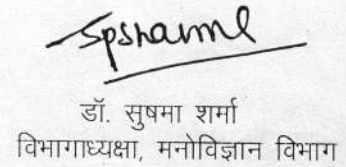 Spsharma
डॉ. सुषमा शर्मा
विभागाध्यक्षा, मनोविज्ञान विभाग